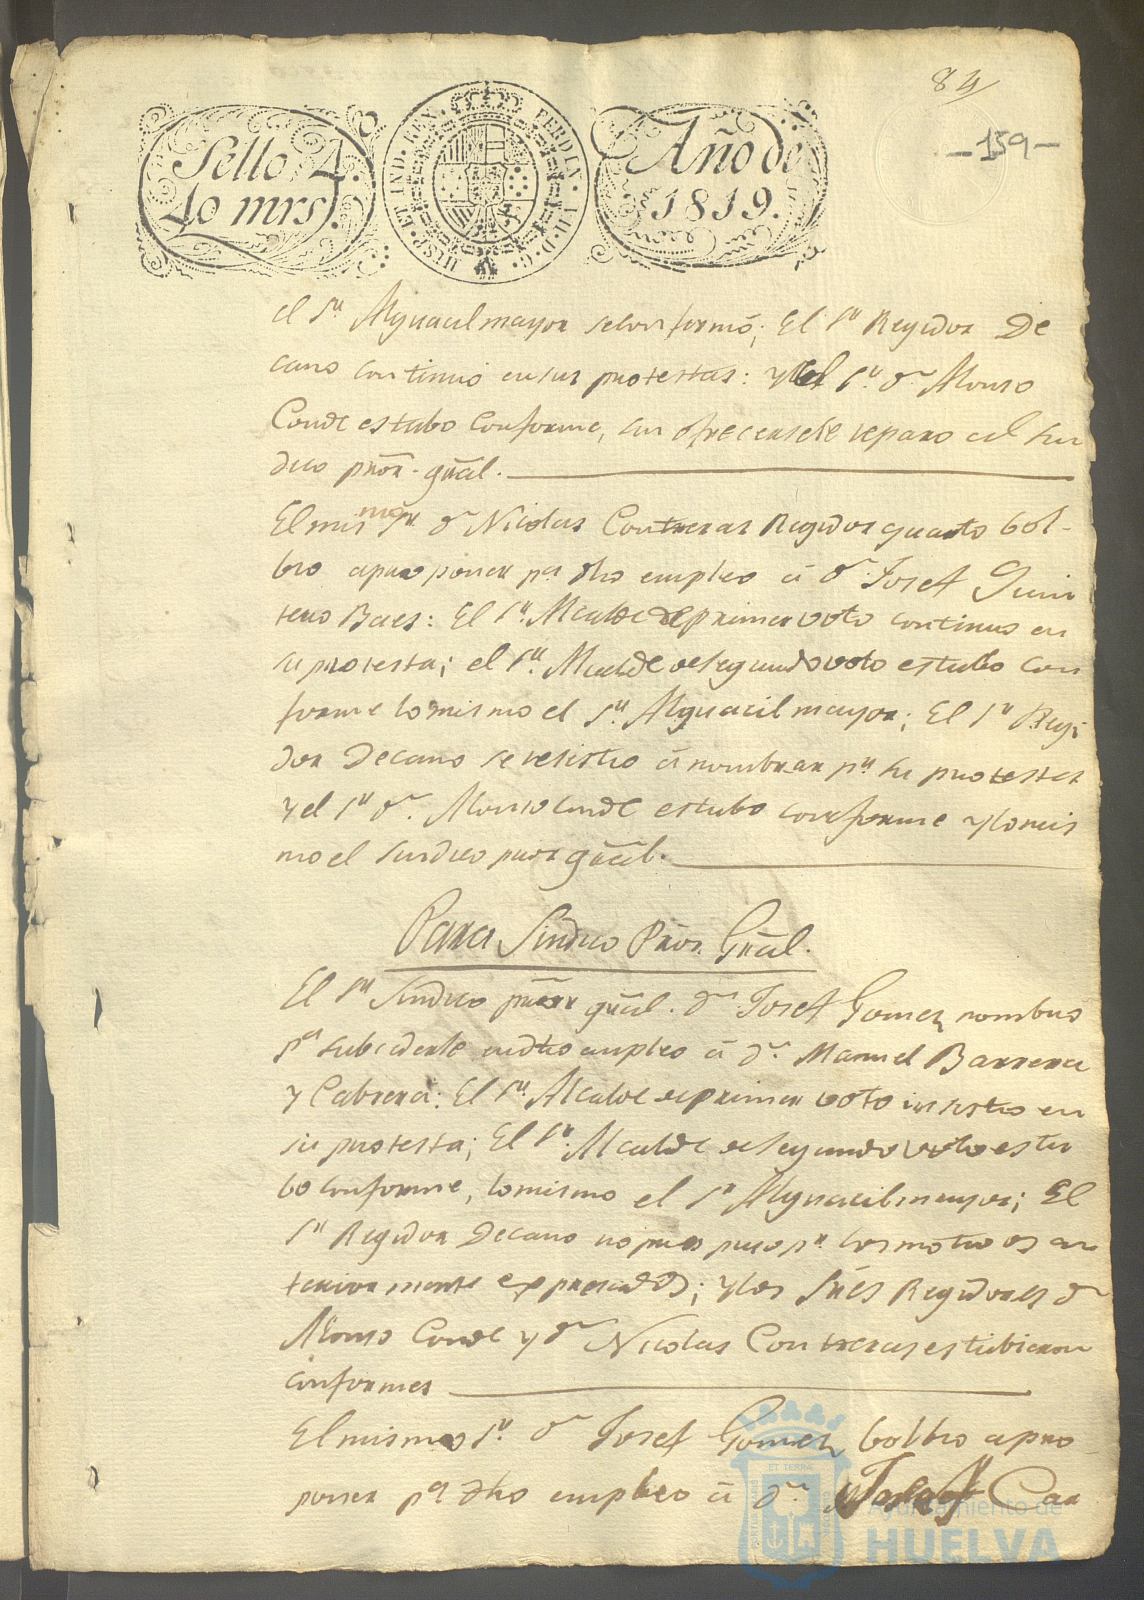 84
-159-
Sello 4.
40 mrs.
HISP. ET IND. REX. FERDIN. VII. D. G.
Año de
1819.
el Sr. Alguacil mayor se conformó; El Sr Regidor De
cano continuó en sus protestas: y el Sr. Dn Alonso
Conde estubo conforme, sin ofrecersele reparo al Sin
dico prōr. grāl.
El mismo Sr Dn Nicolas Contreras Regidor quarto bol-
bio a proponer pa dho empleo á Dn Josef Quin
tero Baes: El Sr. Alcalde de primer voto continuó en
su protesta; el Sr. Alcalde de segundo voto estubo con
forme lo mismo el Sr. Alguacil mayor; El Sr Regi
dor Decano se resistio á nombrar pr su protesta
y el Sr Dn. Alonso Conde estubo conforme y lo mis
mo el Sindico prōr grāl.
Para Sindico Prōr. Grāl.
El Sr Sindico prōr grāl. Dn Josef Gomez nombró
pa subcederle en dho empleo á Dn. Manuel Barrera
y Cabrera: El Sr. Alcalde de primer voto insistio en
su protesta; El Sr. Alcalde de segundo voto estu
bo conforme, lo mismo el Sr Alguacil mayor; El
Sr Regidor Decano no propuso pr los motivos an
teriormente expresados; y los Sres Regidores Dn
Alonso Conde y Dn Nicolas Contreras estubieron
conformes
El mismo Sr. Dn Josef Gomez bolbio a pro
poner pa dho empleo á Dn. Josef Car
Ayuntamiento de
HUELVA